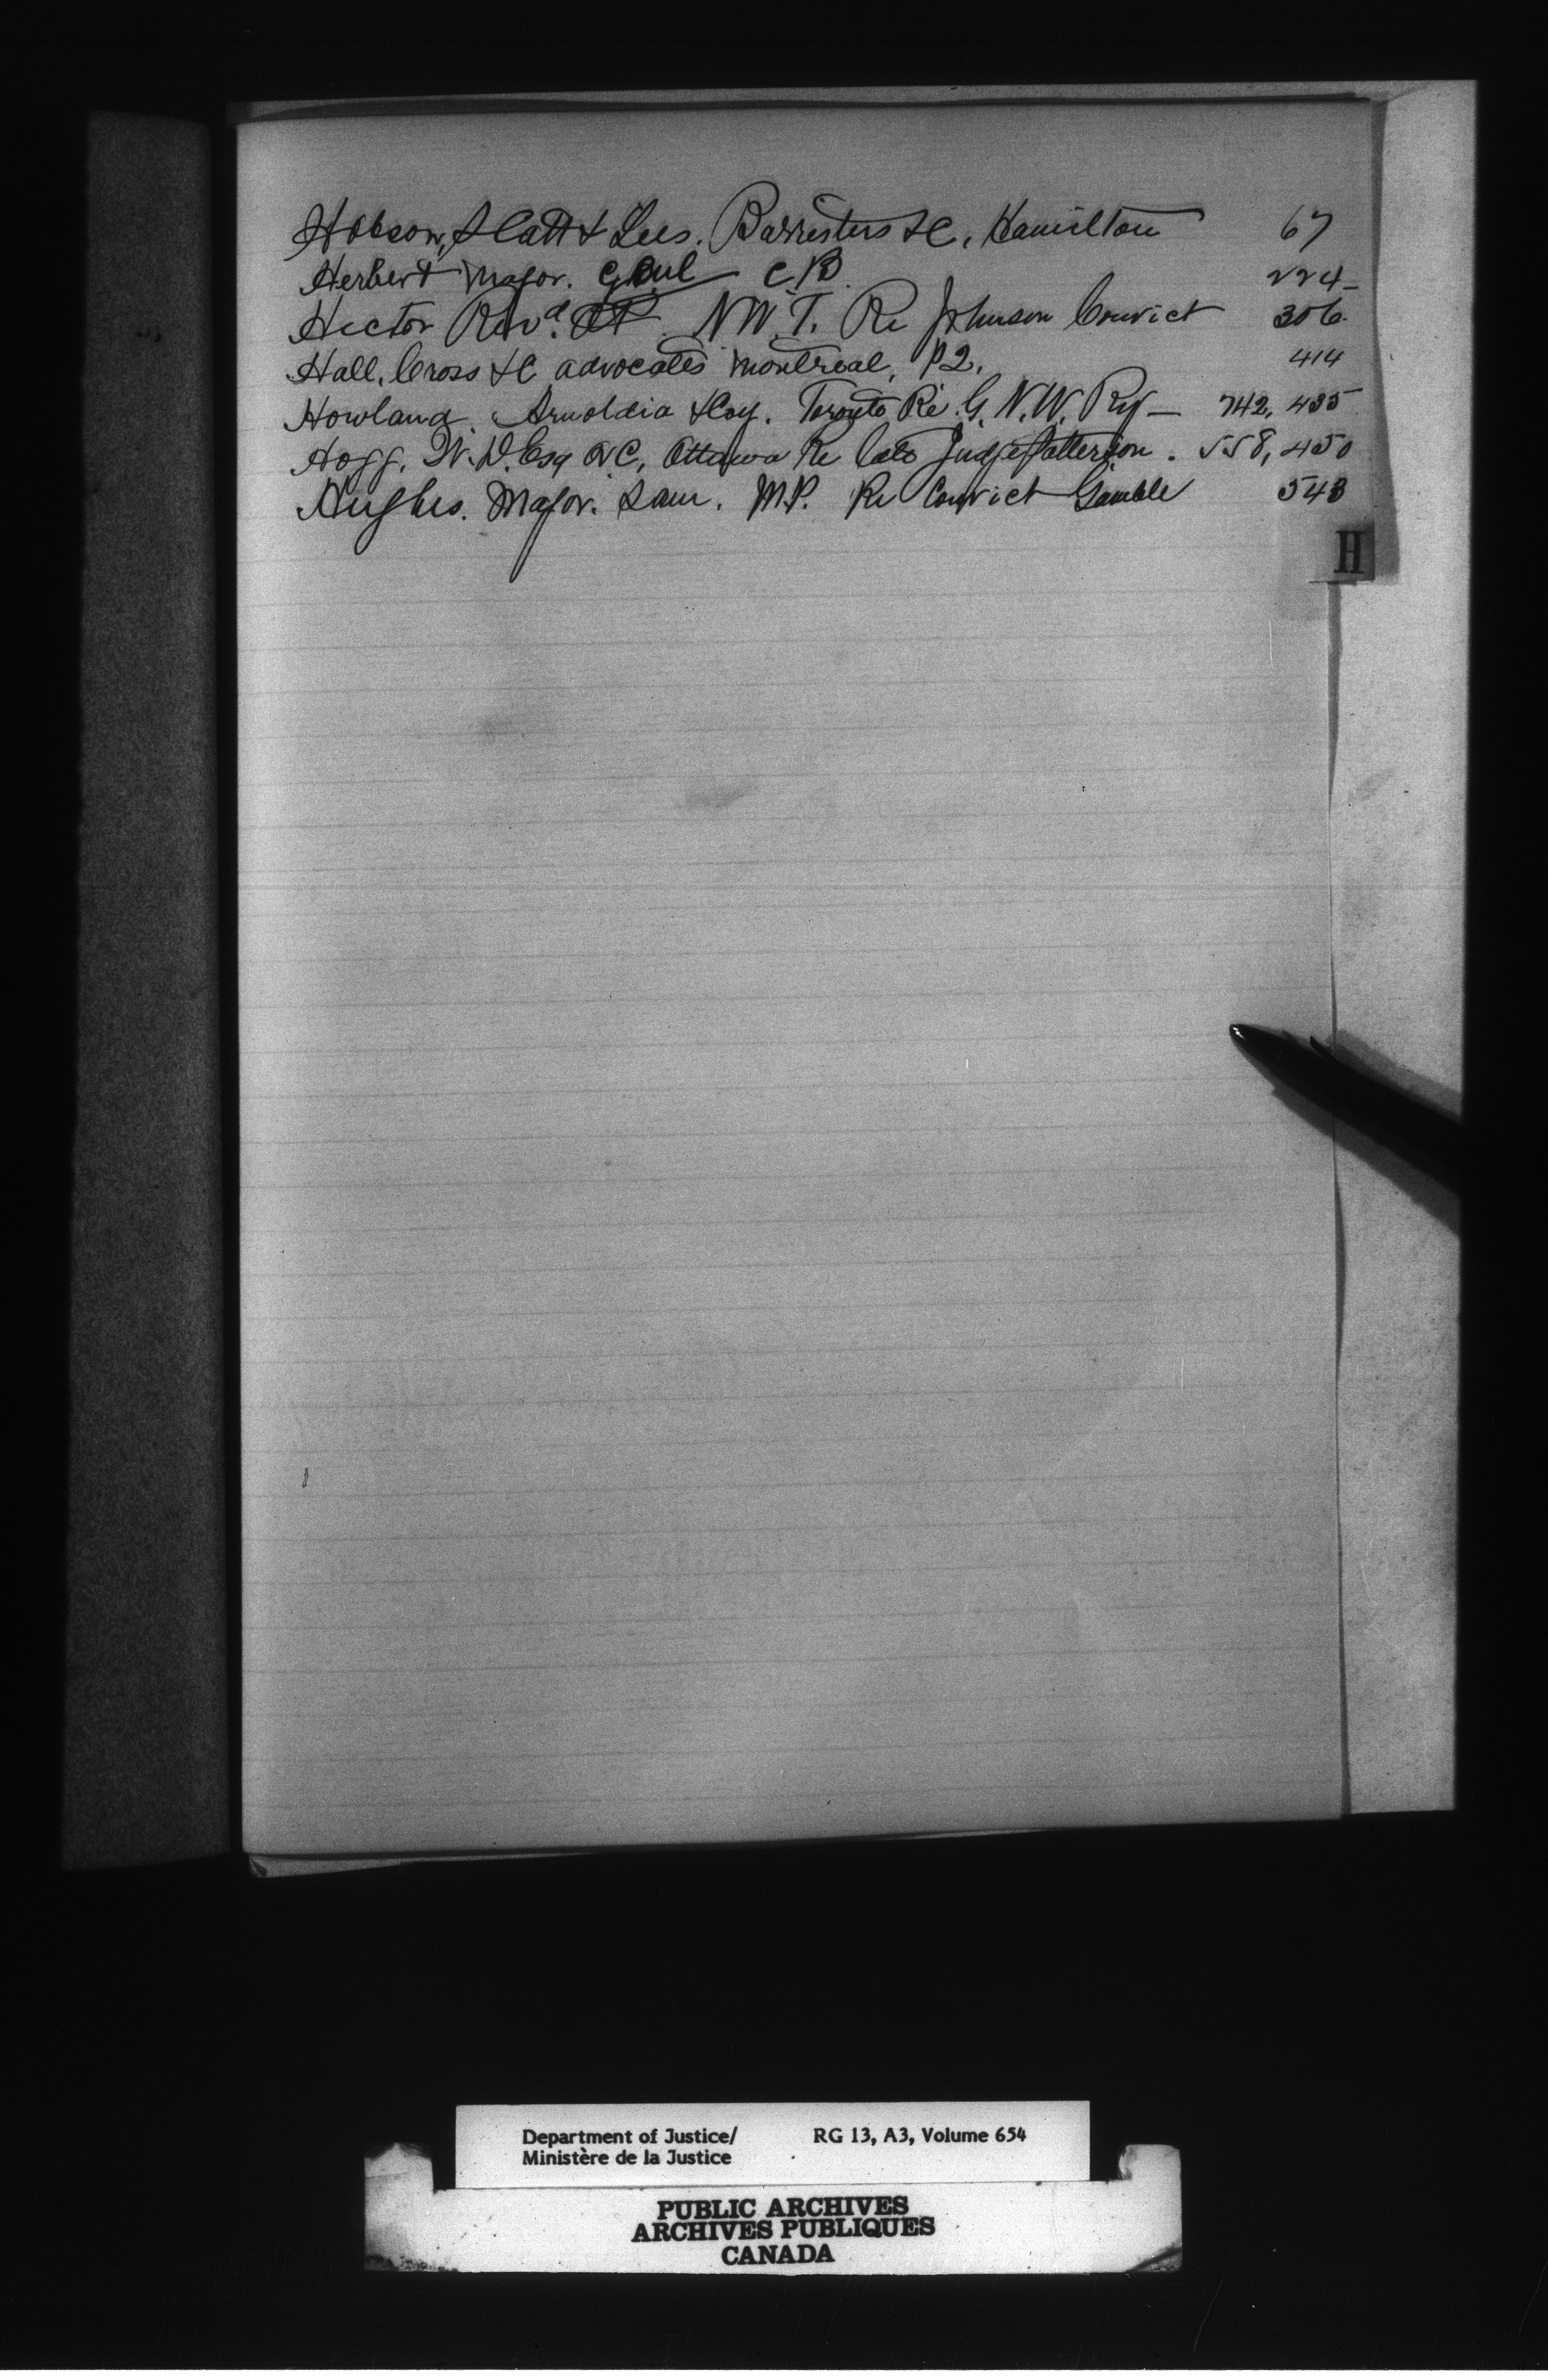 Hobson, Slatt & Lees. Barristers &c, Hamilton 67
Herbert Major. Genl C B. 224
Hector Revd. N W. T. Re Johnson Convict 306
Hall, Cross &c advocates Montreal, P2. 414
Howland. Arnoldia & Coy. Toronto Re. G. N. W. Ry — 742, 435
Hogg, W. D. Esq QC, Ottawa Re late Judge Patterson. 558, 450
Hughes. Major. Sam. M.P. Re Convict Gamble 543
H
Department of Justice/ RG 13, A3, Volume 654
Ministère de la Justice
PUBLIC ARCHIVES
ARCHIVES PUBLIQUES
CANADA